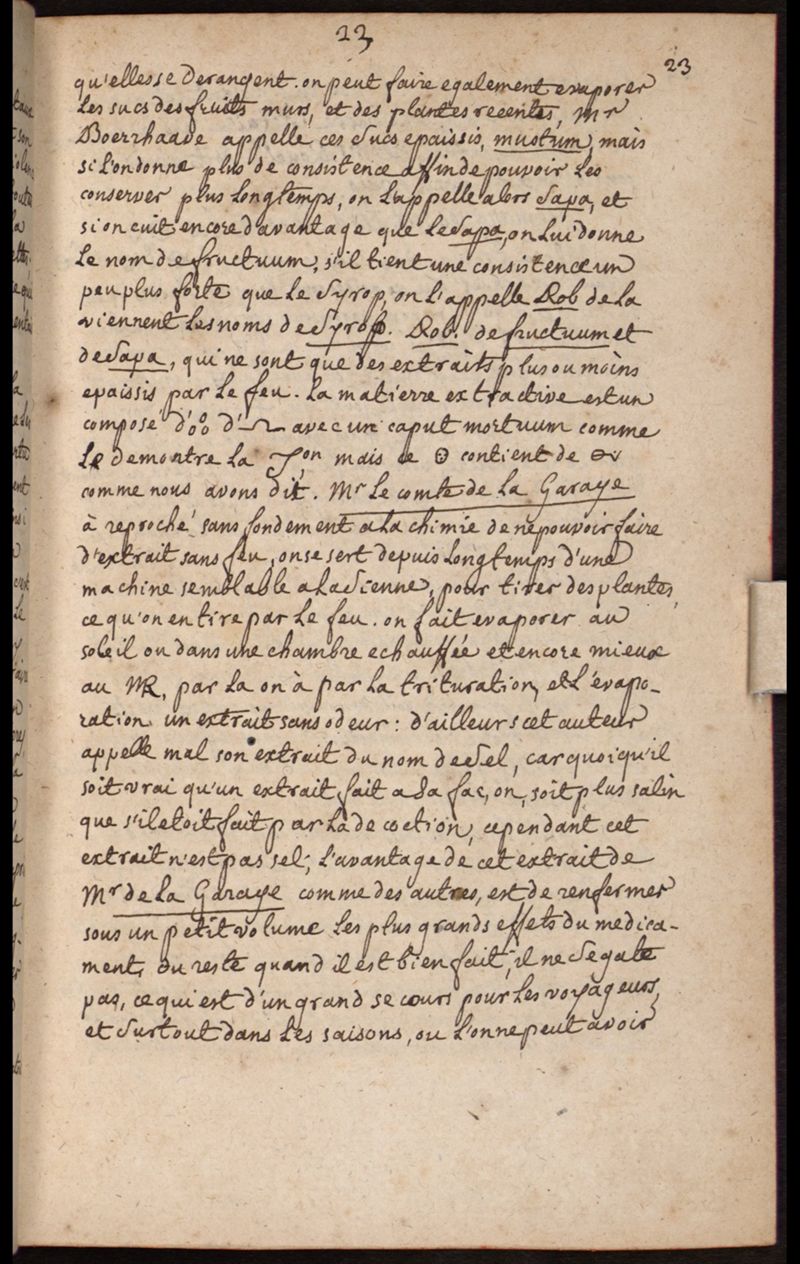 23
23
qu'elles se derangent. on peut faire egalement evaporer
les sucs des fruits murs, et des plantes recentes, Mr
Boerrhaave appelle ces sucs epaissis, mustum, mais
si l'on donne plus de consistence affin de pouvoir les
conserver plus longtemps, on l'appelle alors sapa, et
si on cuit encore d'avantage que le sapa, on lui donne
le nom de fructuum, s'il tient une consistence un
peu plus forte que le syrop, on l'appelle Rob de la
viennent les noms de syrop. Rob. de fructuum et
de sapa, qui ne sont que des extraits plus ou moins
epaissis par le feu. la matierre extractive est un
composé d' d' avec un caput mortuum comme
le demontre la on mais ce ⊙ contient de
comme nous avons dit. Mr le comte de la Garaye
à reproché sans fondement a la chimie de ne pouvoir faire
d'extrait sans feu, on se sert depuis longtemps d'une
machine semblable a la sienne, pour tirer des plantes,
ce qu'on en tire par le feu. on fait evaporer au
soleil ou dans une chambre echauffée et encore mieux
au par la on à par la trituration, et l'évapo-
ration un extrait sans odeur: d'ailleurs cet auteur
appelle mal son extrait du nom de sel, car quoiqu'il
soit vrai qu'un extrait fait a sa façon, soit plus salin
que s'il etoit fait par la decoction, cependant cet
extrait n'est pas sel; l'avantage de cet extrait de
Mr de la Garaye comme des autres, est de renfermer
sous un petit volume les plus grands effets du medica-
ment, du reste quand il est bien fait, il ne se gate
pas, ce qui est d'un grand secours pour les voyageurs,
et surtout dans les saisons, ou l'on ne peut avoir